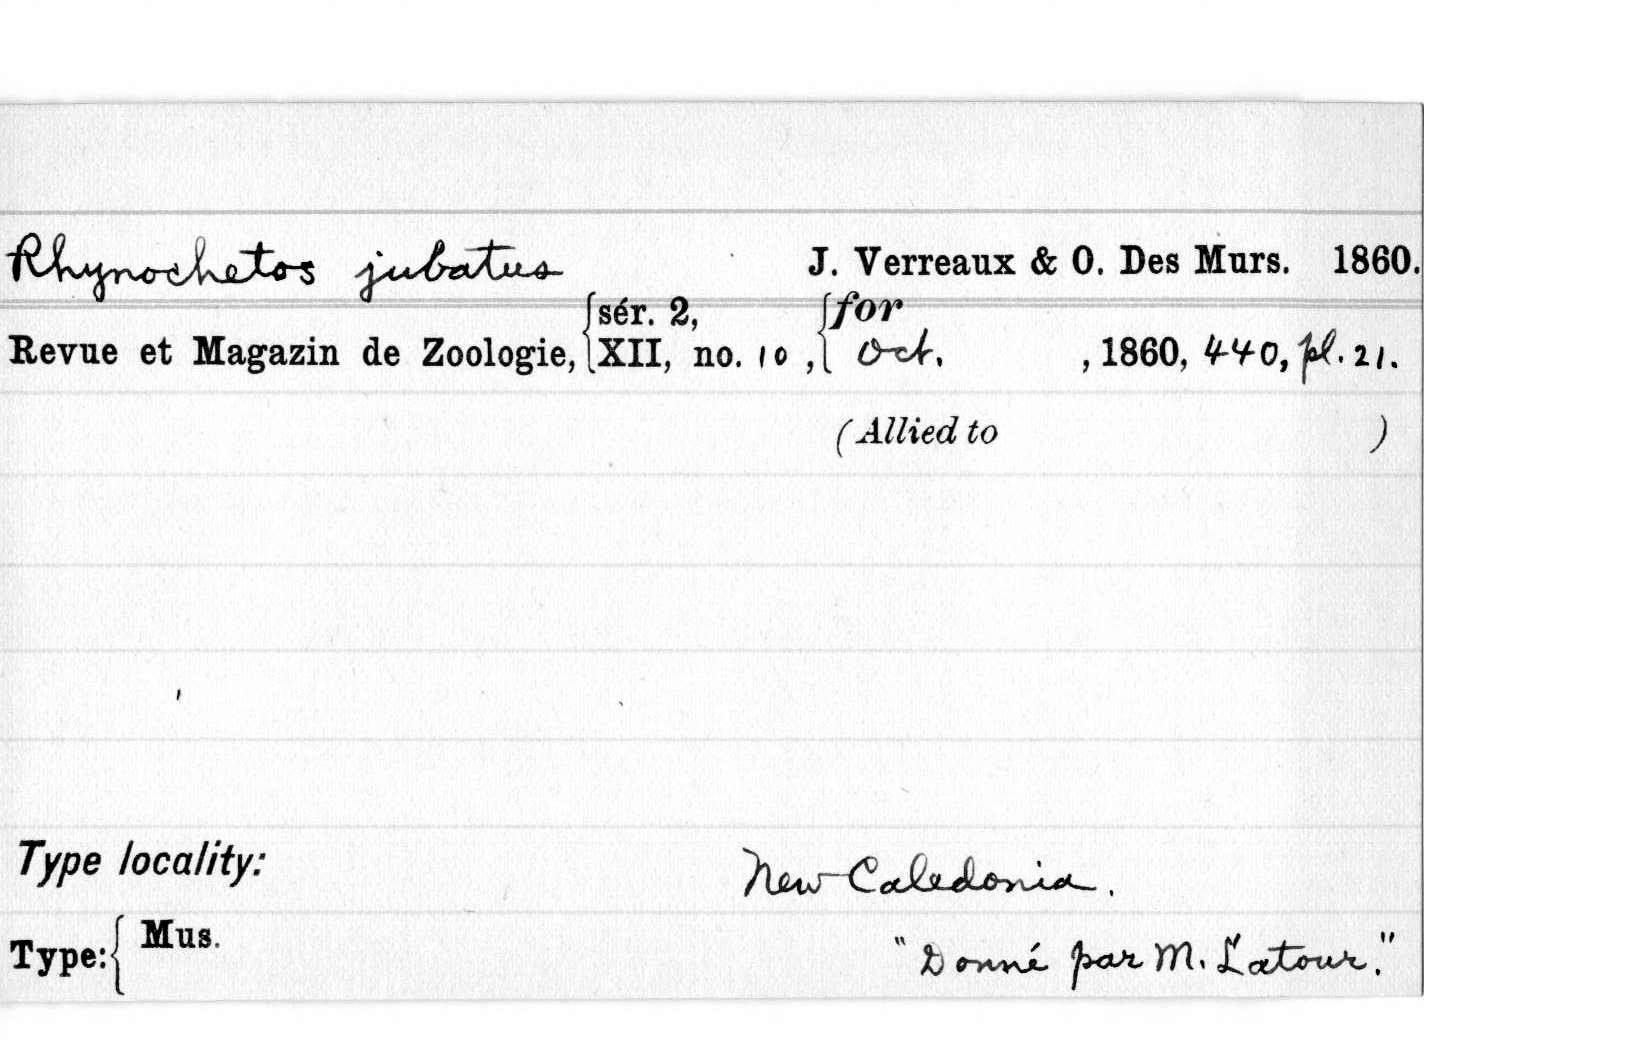 Rhynochetos jubatus J. Verreaux & O. Des Murs. 1860.
sér. 2, for
Revue et Magazin de Zoologie, XII, no. 10, Oct. , 1860, 440, pl. 21.
(Allied to )
Type locality: New Caledonia.
Mus.
Type: "Donné par M. Latour."